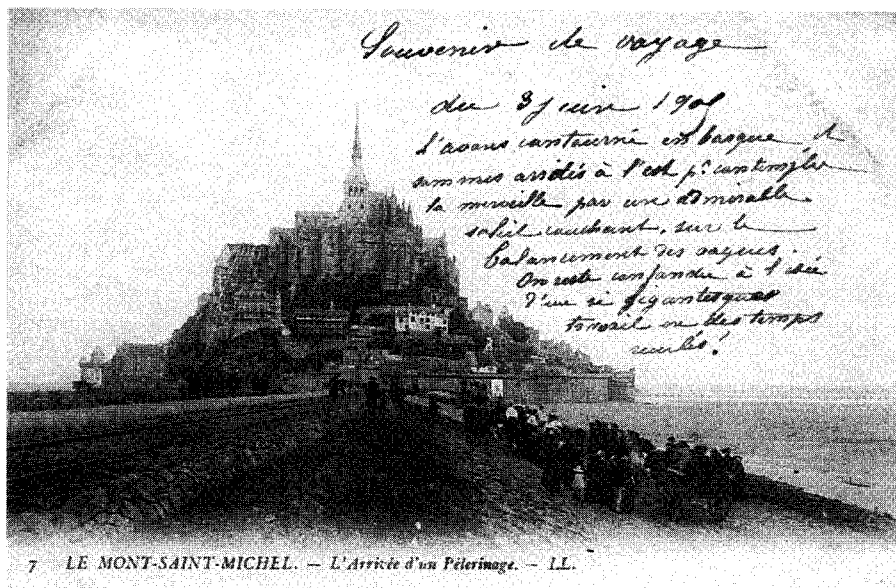 Souvenir de voyage
du 3 juin 190
L'avons contourné en barque et
sommes arrêtés à l'est pr contempler
la merveille par un admirable
soleil couchant, sur le
balancement des vagues.
On reste confondu à l'idée
d'un si gigantesque
travail en des temps
reculés!
7 LE MONT-SAINT-MICHEL. — L'Arrivée d'un Pèlerinage. — LL.